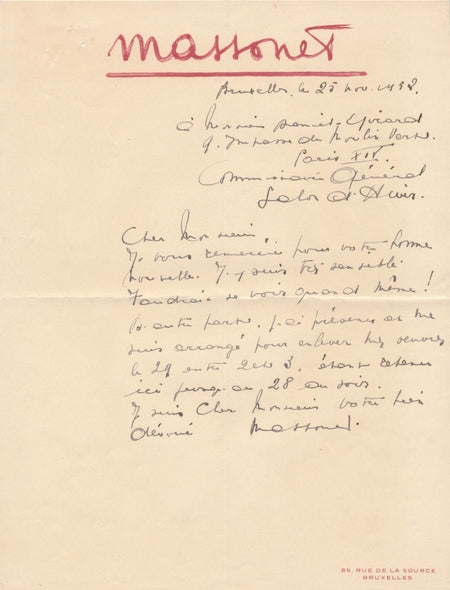 Massonet
Bruxelles, le 25 nov. 1952.
à Monsieur Daniel
9. Impasse du Moulin Vert.
Paris XIV.
Commissaire Général
Salon d'Hiver.
Cher Monsieur
Je vous remercie pour votre bonne
nouvelle. J'y suis très sensible.
Faudrait se voir quand même!
D'autre part, j'ai prévenu et me
suis arrangé pour enlever mes oeuvres
le 29 entre 2 et 3, étant retenu
ici jusqu'au 28 au soir.
Je suis Cher Monsieur votre bien
dévoué Massonet.
85, RUE DE LA SOURCE
BRUXELLES